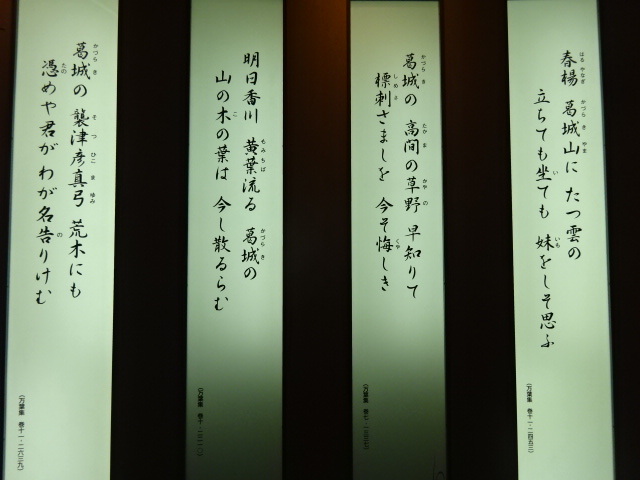 春楊 葛城山に たつ雲の
立ちても坐ても 妹をしそ思ふ
(万葉集 巻十一・二四五三)
葛城の 高間の草野 早知りて
標刺さましを 今そ悔しき
(万葉集 巻七・一三三七)
明日香川 黄葉流る 葛城の
山の木の葉は 今し散るらむ
(万葉集 巻十・二二一〇)
葛城の 襲津彦真弓 荒木にも
憑めや君が わが名告りけむ
(万葉集 巻十一・二六三九)